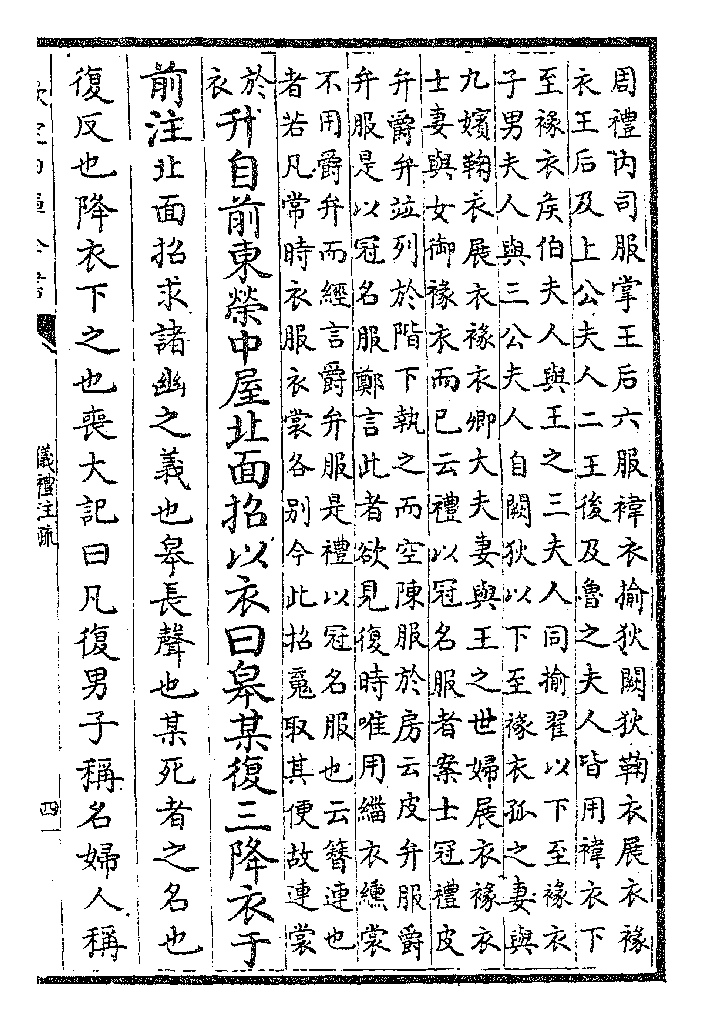 周禮内司服掌王后六服褘衣揄狄闕狄鞠衣展衣褖
衣王后及上公夫人二王後及魯之夫人皆用褘衣下
至褖衣侯伯夫人與王之三夫人同揄翟以下至褖衣
子男夫人與三公夫人自闕狄以下至褖衣孤之妻與
九嬪鞠衣展衣褖衣卿大夫妻與王之世婦展衣褖衣
士妻與女御褖衣而已云禮以冠名服者案士冠禮皮
弁爵弁並列於階下執之而空陳服於房云皮弁服爵
弁服是以冠名服鄭言此者欲見復時唯用緇衣纁裳
不用爵弁而經言爵弁服是禮以冠名服也云簪連也
者若凡常時衣服衣裳各别今此招䰟取其便故連裳
於
衣
升自前東榮中屋北面招以衣曰皋某復三降衣于
前注北面招求諸幽之義也皋長聲也某死者之名也
復反也降衣下之也喪大記曰凡復男子稱名婦人稱
儀禮注疏
四一